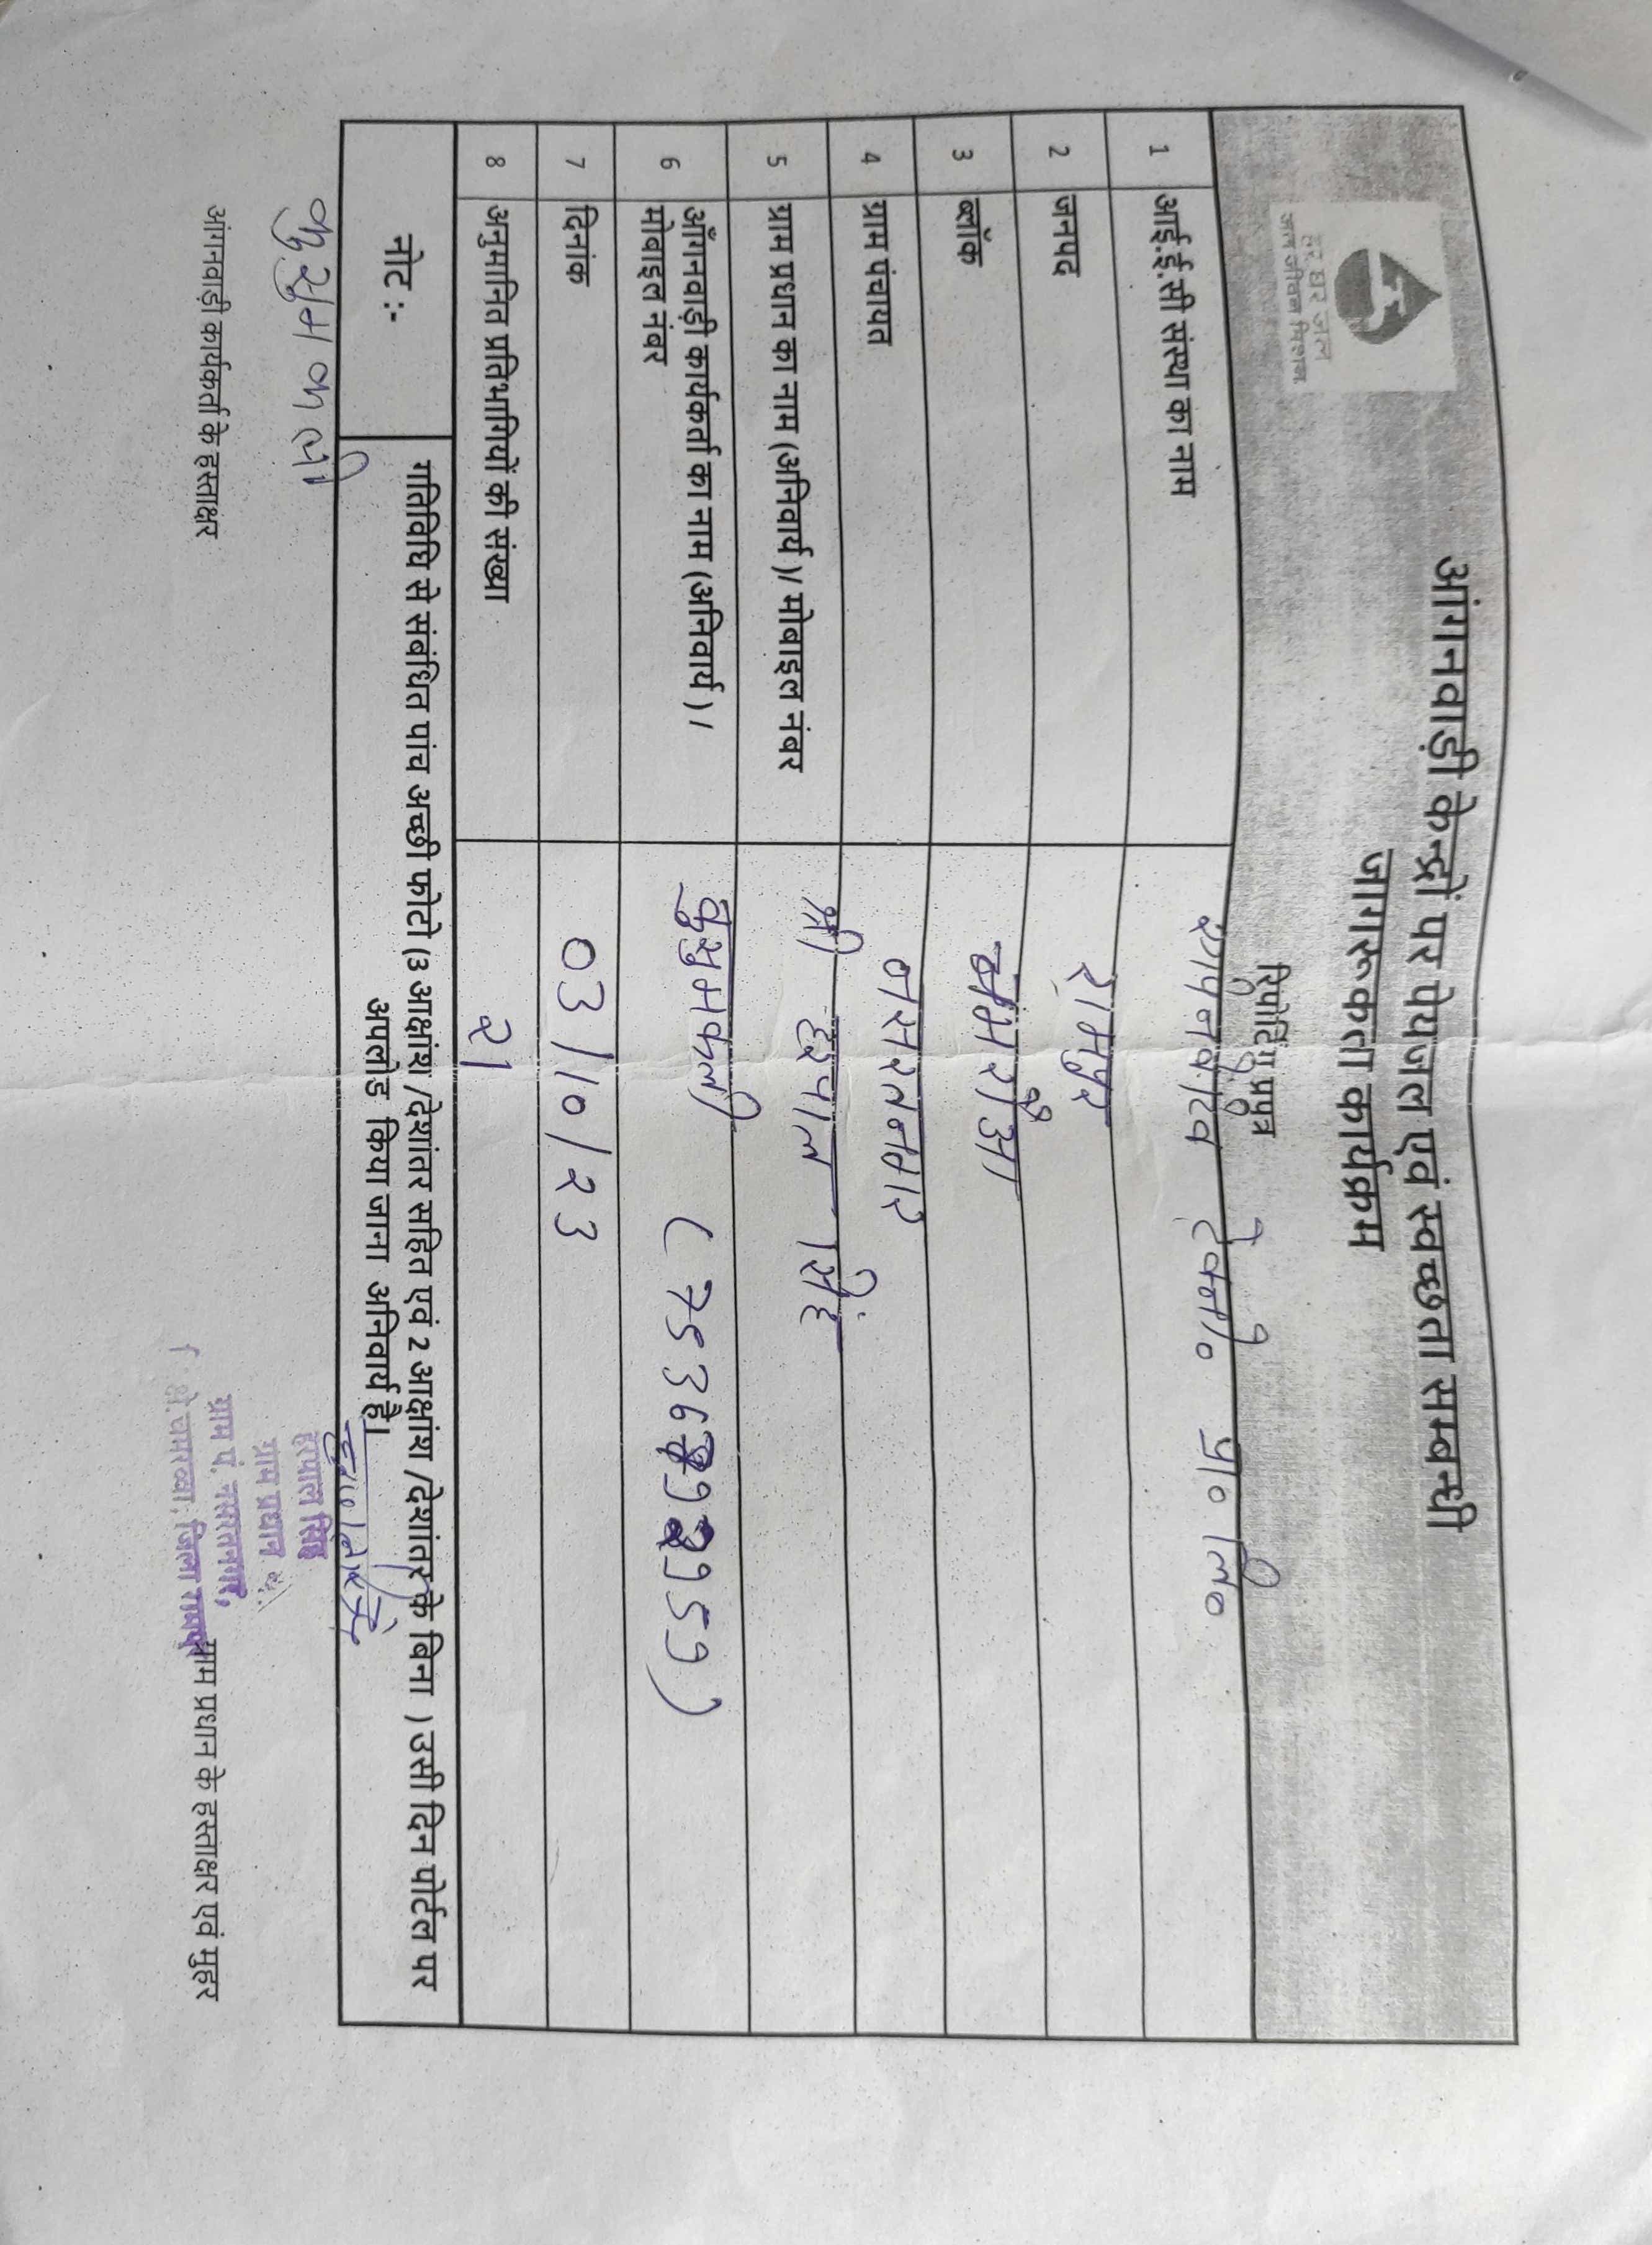 आंगनवाड़ी केन्द्रों पर पेयजल एवं स्वच्छता सम्बन्धी
जागरूकता कार्यक्रम
हर घर जल
जल जीवन मिशन
रिपोर्टिंग प्रपत्र
1 आई.ई.सी संस्था का नाम टेक्नो० प्रा० लि०
2 जनपद रामपुर
3 ब्लॉक
4 ग्राम पंचायत नसरतनगर
5 ग्राम प्रधान का नाम (अनिवार्य )/ मोबाइल नंबर श्री हरपाल सिंह
6 आँगनवाड़ी कार्यकर्ता का नाम (अनिवार्य ) / कुसुमकली
मोबाइल नंबर
7 दिनांक 03/10/23
8 अनुमानित प्रतिभागियों की संख्या २1
नोट :- गतिविधि से संबंधित पांच अच्छी फोटो (3 आक्षांश /देशांतर सहित एवं 2 आक्षांश /देशांतर के बिना ) उसी दिन पोर्टल पर
अपलोड किया जाना अनिवार्य है।
कुसुमकली
हरपाल सिंह
ग्राम प्रधान
ग्राम पं. नसरतनगर,
आंगनवाड़ी कार्यकर्ता के हस्ताक्षर
ग्राम प्रधान के हस्ताक्षर एवं मुहर